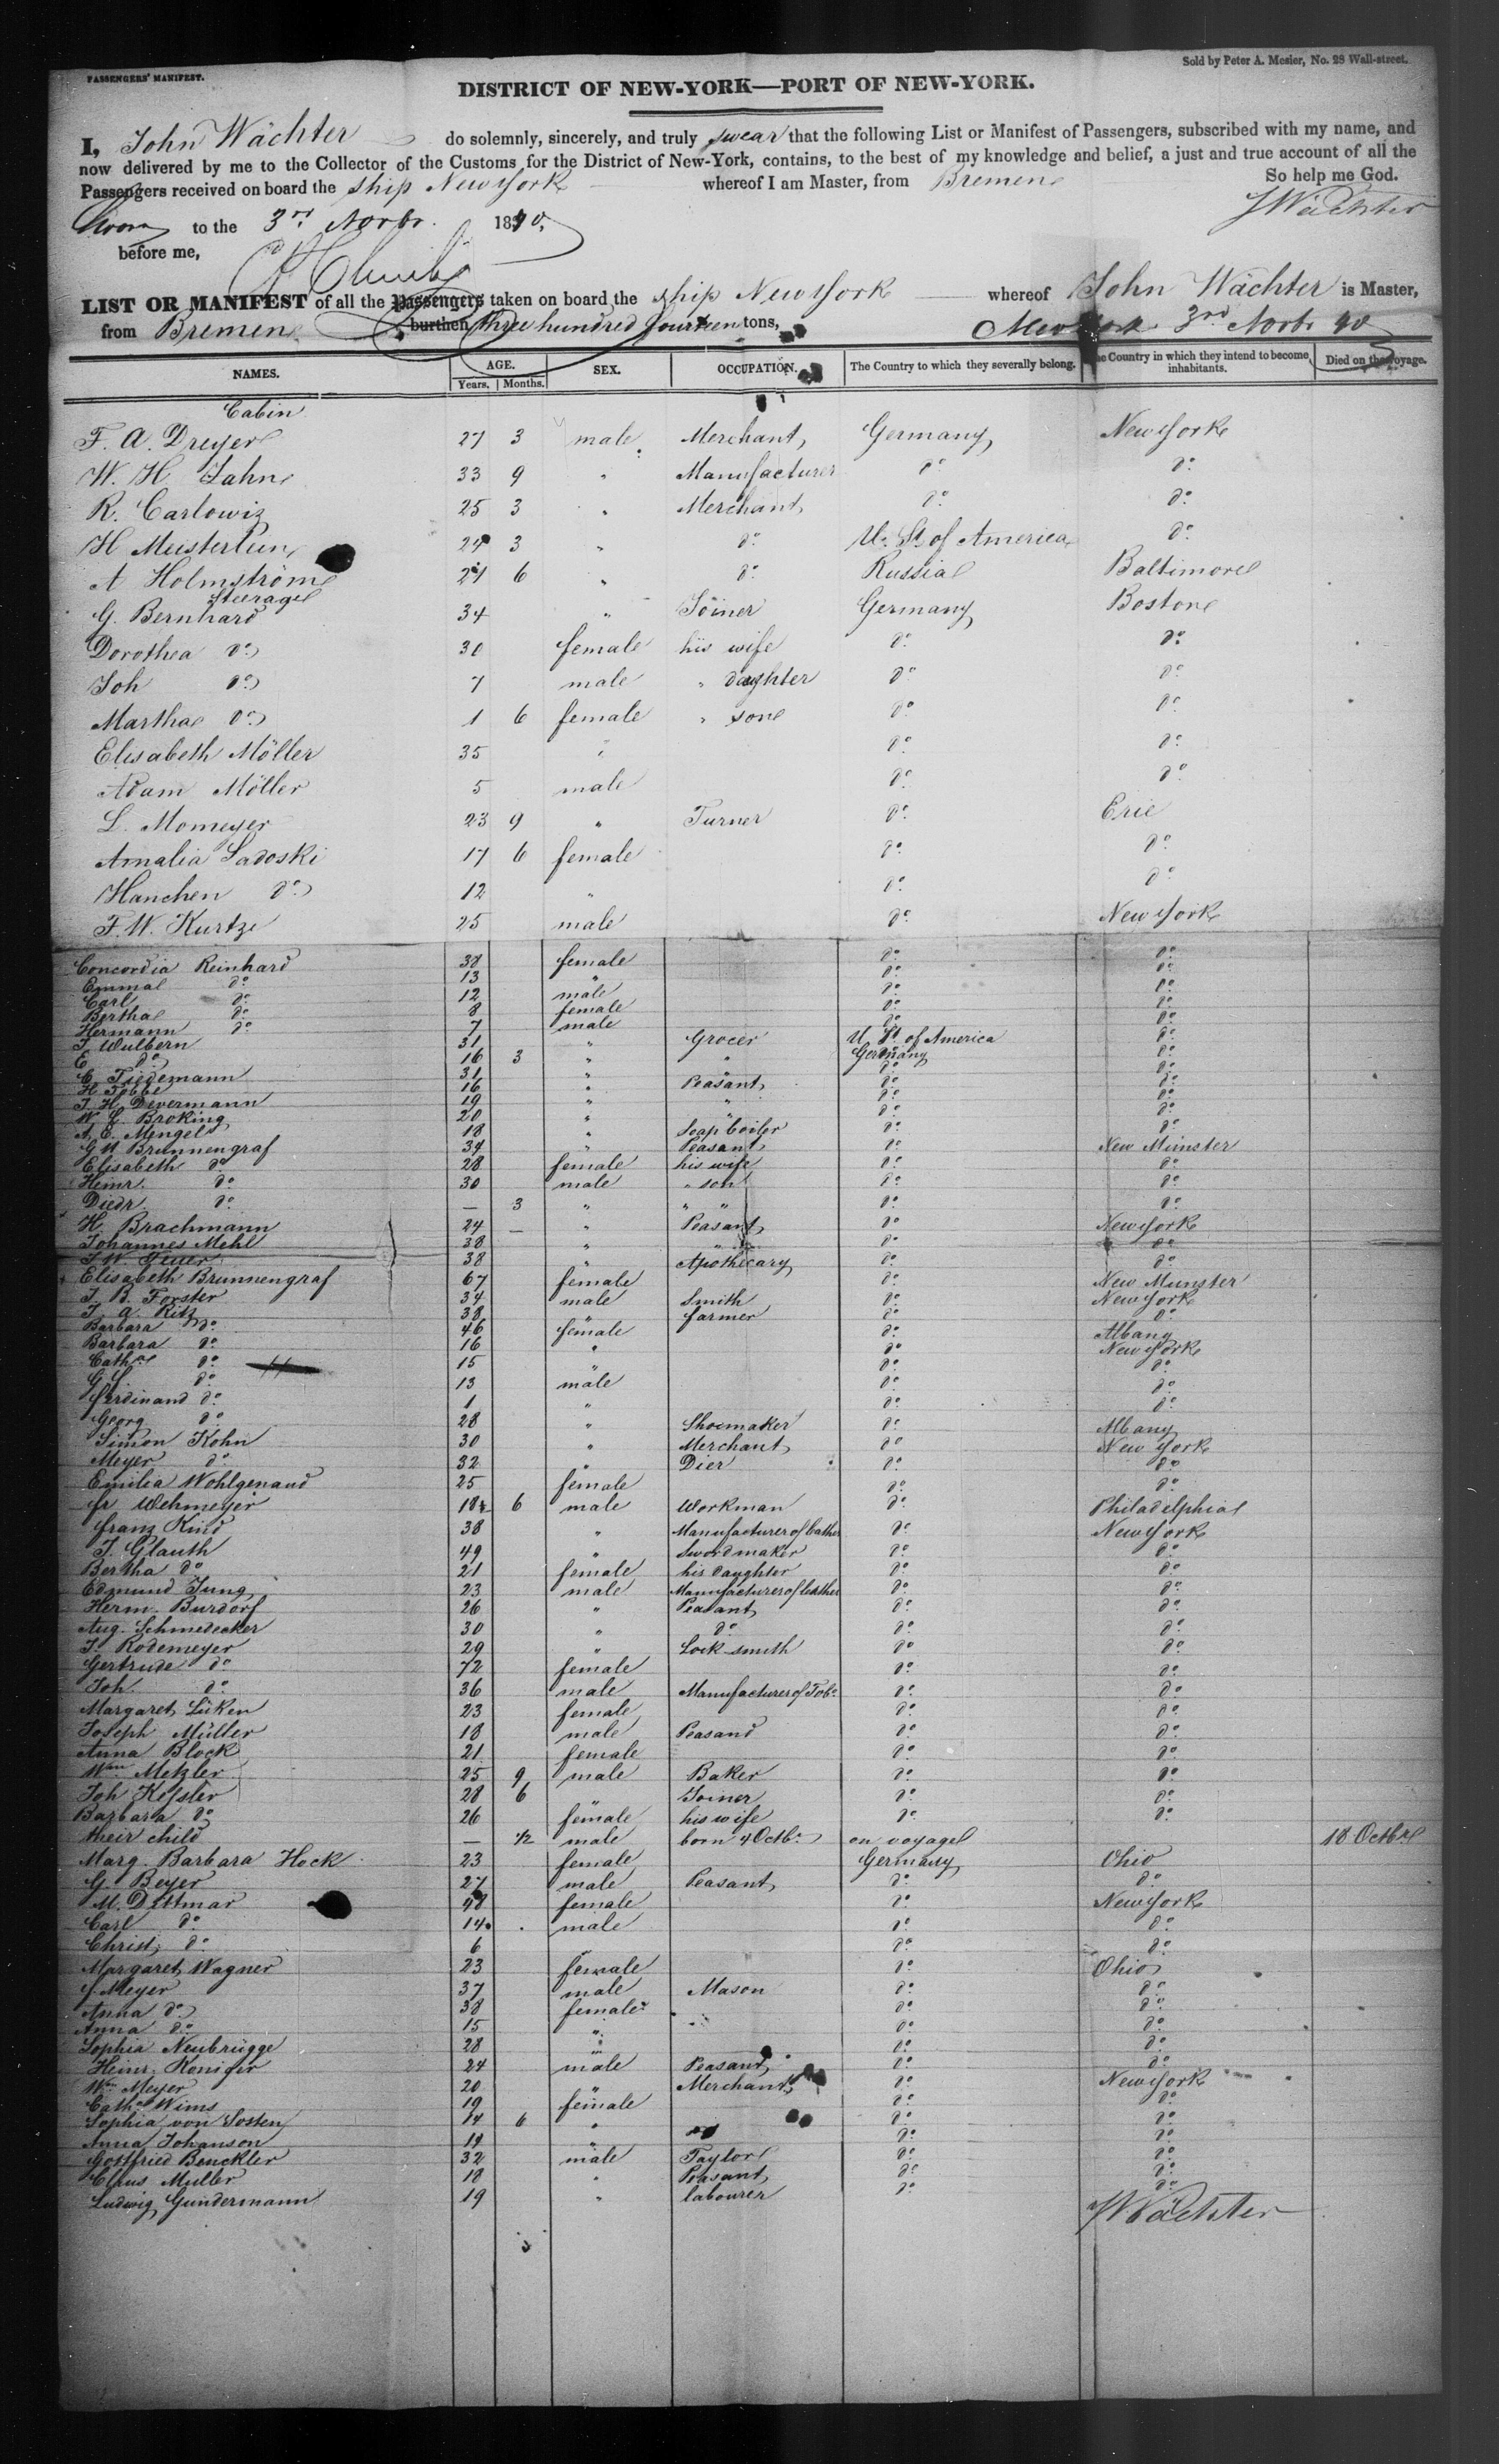 PASSENGERS' MANIFEST.
Sold by Peter A. Mesier, No. 28 Wall-street.
DISTRICT OF NEW-YORK—PORT OF NEW-YORK.
I, John Wächter do solemnly, sincerely, and truly swear that the following List or Manifest of Passengers, subscribed with my name, and
now delivered by me to the Collector of the Customs for the District of New-York, contains, to the best of my knowledge and belief, a just and true account of all the
Passengers received on board the ship New York whereof I am Master, from Bremen So help me God.
Sworn to the 3rd Novbr. 1840, JWächter
before me,
LIST OR MANIFEST of all the Passengers taken on board the ship New York whereof John Wächter is Master,
from Bremen burthen three hundred fourteen tons, New York 3rd Novbr 40
NAMES. AGE. SEX. OCCUPATION. The Country to which they severally belong. The Country in which they intend to become inhabitants. Died on the voyage.
Years. Months.
Cabin
F. A. Dreyer 27 3 male Merchant Germany New York
W. H Zahn 33 9 " Manufacturer do do
R. Carlowiz 25 3 " Merchant do do
H Meisterlein 24 3 " do U. St. of America do
A Holmström 27 6 " do Russia Baltimore
Steerage
G. Bernhard 34 " Joiner Germany Boston
Dorothea do 30 female his wife do do
Joh do 7 male " daughter do do
Martha do 1 6 female " son do do
Elisabeth Möller 35 " do do
Adam Möller 5 male do do
L. Momeyer 23 9 " Turner do Erie
Amalia Sadoski 17 6 female do do
Hanchen do 12 " do do
F. W. Kurtze 25 male do New York
Concordia Reinhard 38 female do do
Emma do 13 " do do
Carl do 12 male do do
Bertha do 8 female do do
Hermann do 7 male do do
J. Wulbern 31 " Grocer U. St. of America do
E do 16 3 " " Germany do
C. Tiedemann 31 " " do do
H Tobbe 16 " Peasant do do
J. H. Devermann 19 " " do do
W. L. Broking 20 " " do do
A. E. Mengel 18 " Soap boiler do do
G H Brunnengraf 34 " Peasant do New Münster
Elisabeth do 28 female his wife do do
Heinr. do 30 male " son do do
Diedr. do — 3 " " " do do
H. Brachmann 24 — " Peasant do New York
Johannes Mehl 38 " " do do
J. W. 38 " Apothecary do do
Elisabeth Brunnengraf 67 female do New Munster
J. B. Forster 34 male Smith do New York
J. A. Ritz 38 " farmer do do
Barbara do 46 female do Albany
Barbara do 16 " do New York
Cathe do 15 " do do
G. do 13 male do do
Ferdinand do 1 " do do
Georg do 28 " Shoemaker do Albany
Simon Kohn 30 " Merchant do New York
Meyer do 32 " Dier do do
Emilia Wohlgenand 25 female do do
fr Wehmeyer 18 6 male Workman do Philadelphia
Franz Kind 38 " Manufacturer of leather do New York
J. Glauth 49 " Swordmaker do do
Bertha do 21 female his daughter do do
Edmund Jung 23 male Manufacturer of leather do do
Herm. Burdorf 26 " Peasant do do
Aug. Schmedecker 30 " do do do
J. Rodemeyer 29 " Lock smith do do
Gertrude do 72 female do do
Joh. do 36 male Manufacturer of Tob. do do
Margaret Lüken 23 female do do
Joseph Müller 18 male Peasand do do
Anna Block 21 female do do
Wm Metzler 25 9 male Baker do do
Joh Kessler 28 6 " Joiner do do
Barbara do 26 female his wife do do
their child — ½ male born 4 Octbr. on voyage 18 Octbre
Marg. Barbara Hock 23 female Germany Ohio
G. Beyer 27 male Peasant do do
M. Dittmar 48 female do New York
Carl do 14 male do do
Christ. do 6 " do do
Margaret Wagner 23 female do Ohio
f Meyer 37 male Mason do do
Anna do 38 female do do
Anna do 15 " do do
Sophia Neubrügge 28 " do do
Heinr. Koniger 24 male Peasant do do
Wm Meyer 20 " Merchant do New York
Cath. Wims 19 female do do
Sophia von Sosten 14 6 " do do
Anna Johanson 19 " do do
Gottfried Benckler 32 male Taylor do do
Claus Muller 18 " Peasant do do
Ludwig Gundermann 19 " labourer do do
JWächter